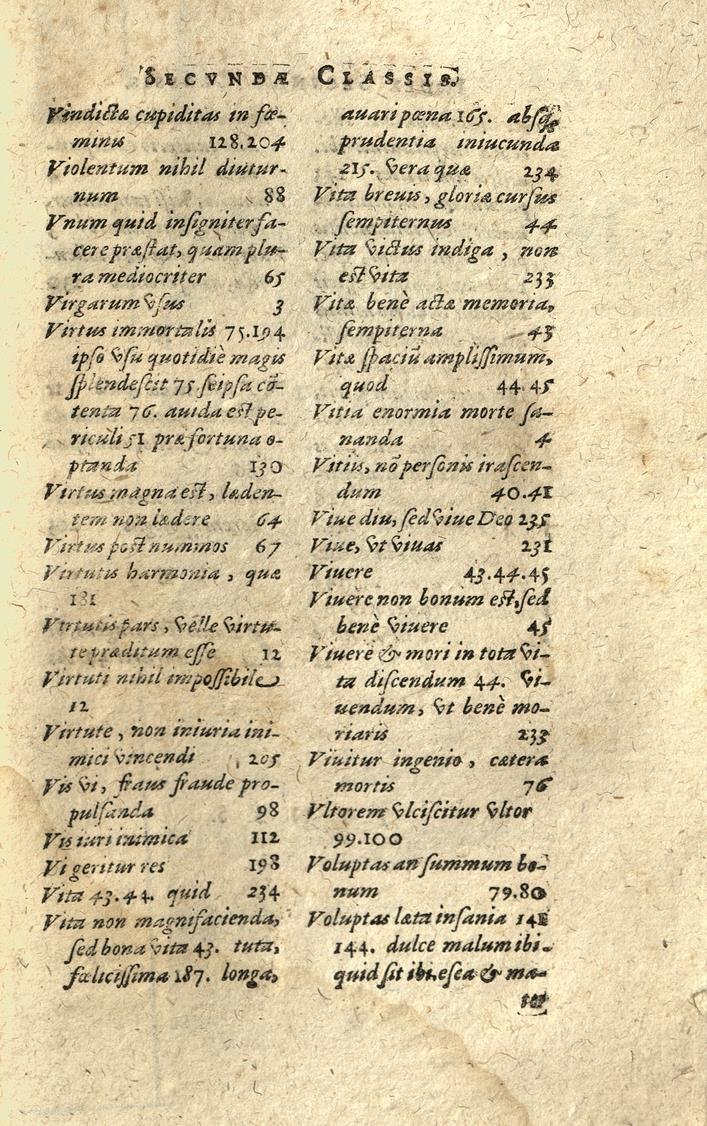 SECVNDÆ CLASSIS.
Vindictæ cupiditas in fœ-
minis 128.204
Violentum nihil diutur-
num 88
Vnum quid insigniter fa-
cere præstat, quàm plu-
ra mediocriter 65
Virgarum vsus 3
Virtus immortalis 75.194
ipso vsu quotidiè magis
splendescit 75. seipsa cõ-
tenta 76. auida est pe-
riculi 51 præ fortuna o-
ptanda 130
Virtus magna est, læden-
tem non lædere 64
Virtus post nummos 67
Virtutis harmonia, quæ
181
Virtutis pars, velle virtu-
te præditum esse 12
Virtuti nihil impossibile
12
Virtute, non iniuria ini-
mici vincendi 205
Vis vi, fraus fraude pro-
pulsanda 98
Vis iuri inimica 112
Vi geritur res 198
Vita 43.44. quid 234
Vita non magnifacienda,
sed bona vita 43. tuta,
fœlicissima 187. longa,
auari pœna 165. absq;
prudentia iniucunda
215. vera quæ 234
Vita breuis, gloriæ cursus
sempiternus 44
Vita victus indiga, non
est vita 233
Vitæ benè actæ memoria,
sempiterna 43
Vitæ spaciũ amplissimum,
quod 44.45
Vitia enormia morte sa-
nanda 4
Vitiis, nõ personis irascen-
dum 40.41
Viue diu, sed viue Deo 235
Viue, vt viuas 231
Viuere 43.44.45
Viuere non bonum est, sed
benè viuere 45
Viuere & mori in tota vi-
ta discendum 44. vi-
uendum, vt benè mo-
riaris 233
Viuitur ingenio, cætera
mortis 76
Vltorem vlciscitur vltor
99.100
Voluptas an summum bo-
num 79.80
Voluptas læta insania 141
144. dulce malum ibi-
quid sit ibi. esca & ma-